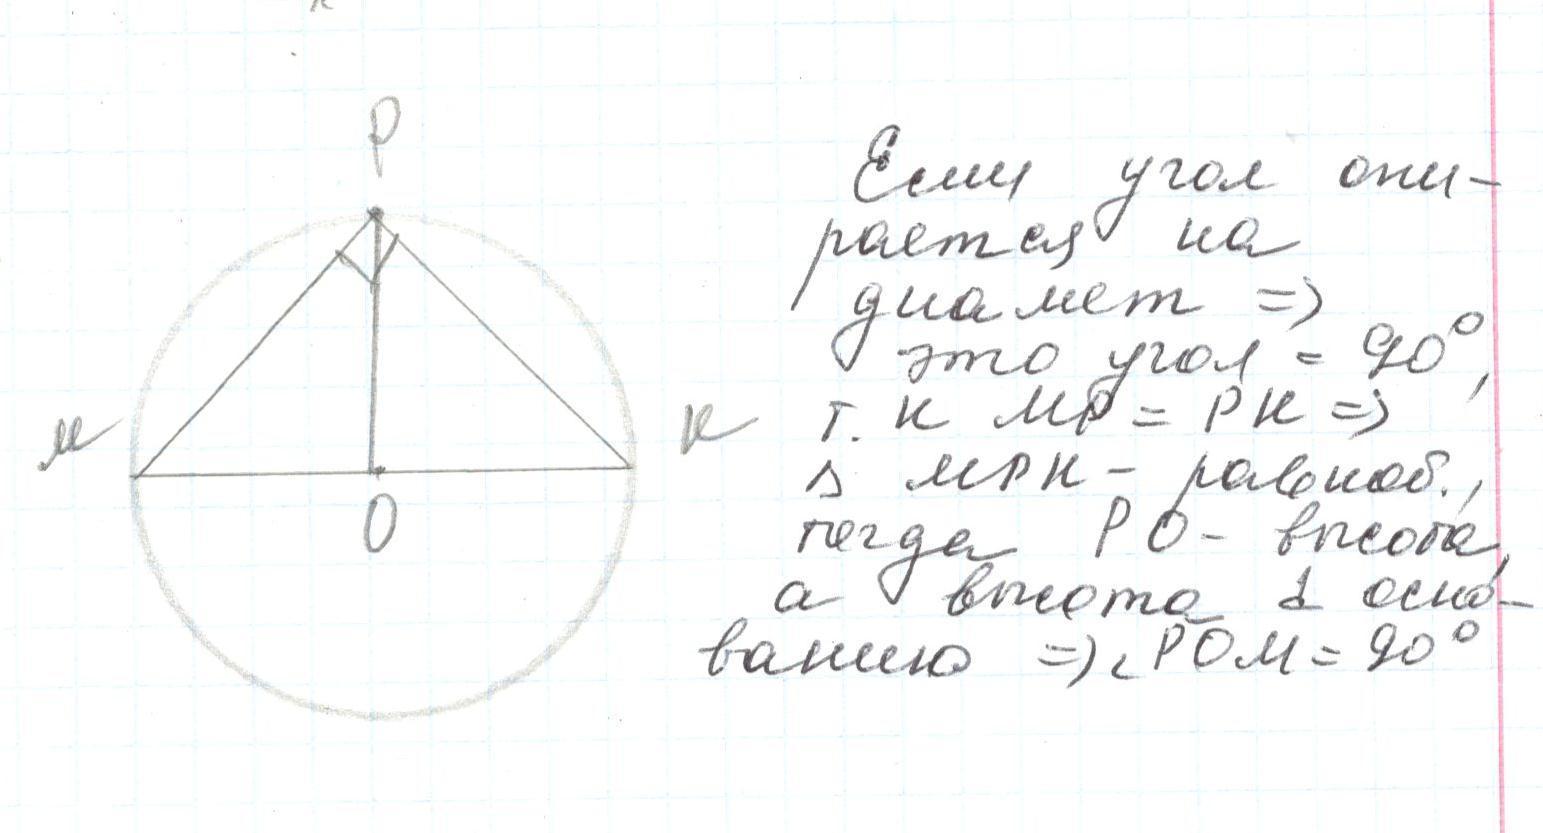 P
М
К
О
Если угол опи-
рается на
диамет =>
это угол = 90°,
т. к МР = РК =>
∆ МРК - равноб.,
тогда РО - высота,
а высота ⊥ осно-
ванию => ∠РОМ = 90°